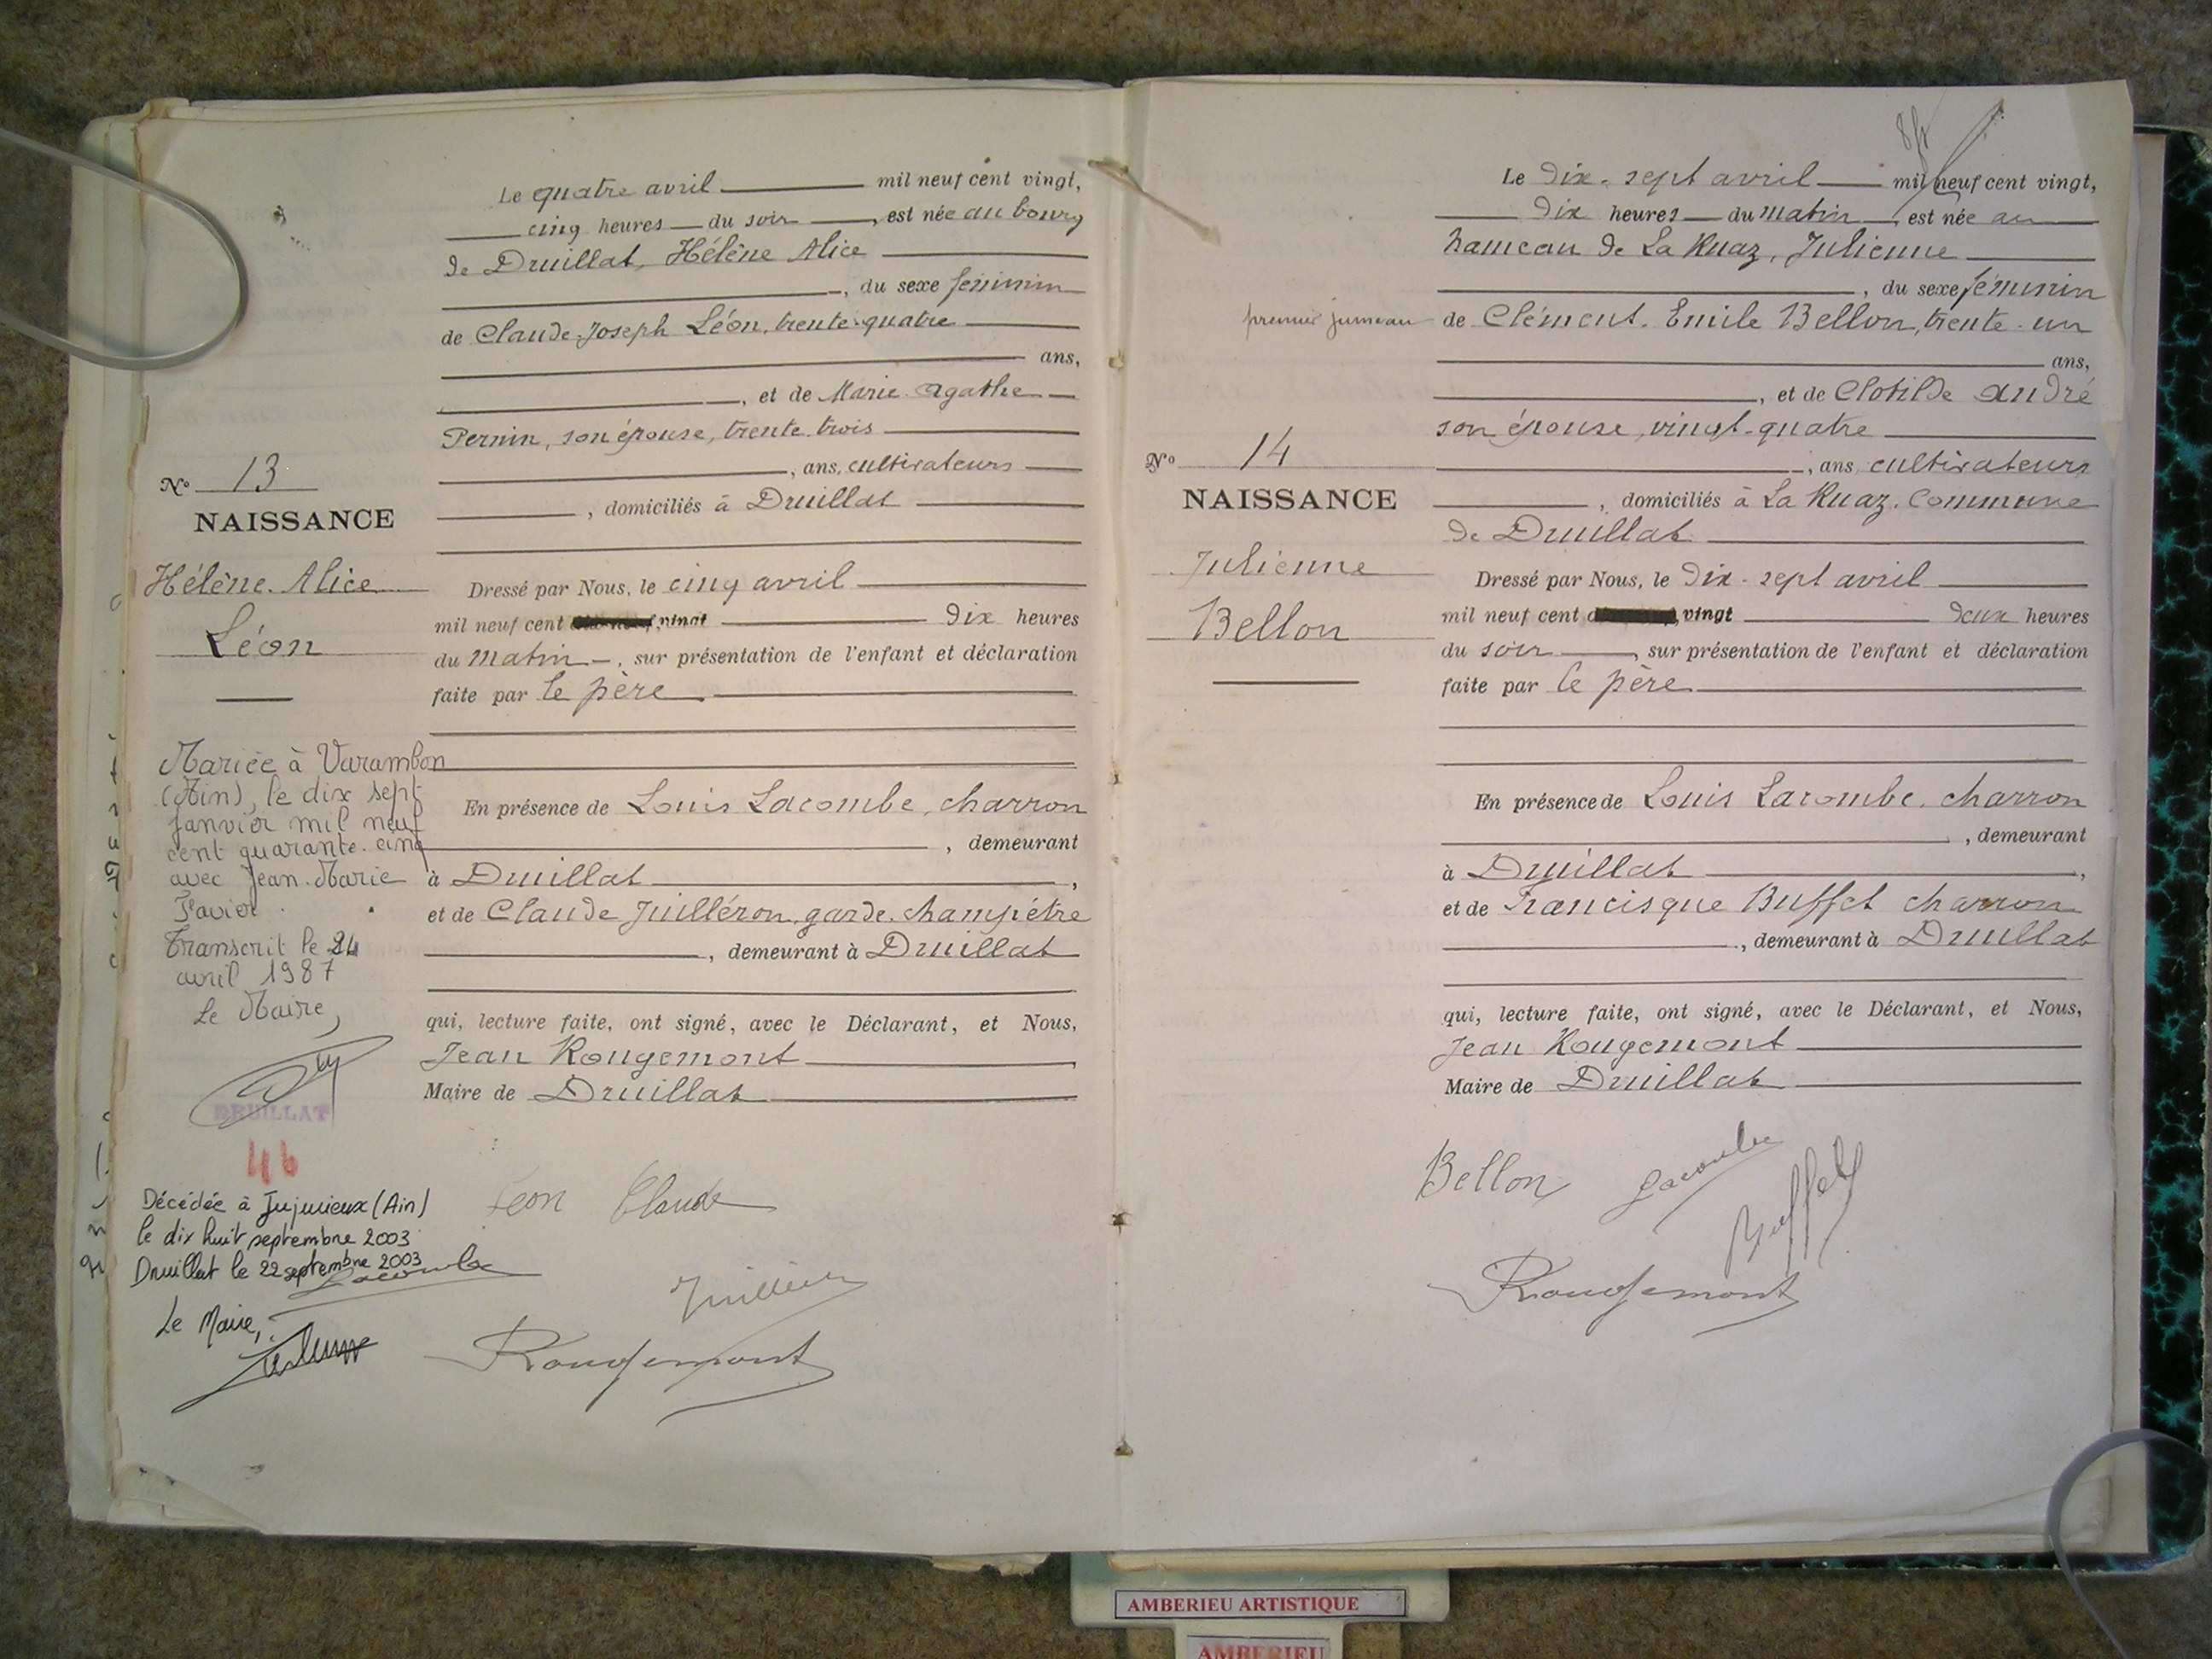 Le quatre avril mil neuf cent vingt,
cinq heures du soir, est née au bourg
de Druillat, Hélène Alice
, du sexe féminin
de Claude Joseph Léon, trente-quatre
ans,
, et de Marie Agathe
Pernin, son épouse, trente-trois
, ans, cultivateurs
, domiciliés à Druillat
N° 13
NAISSANCE
Hélène Alice
Léon
Dressé par Nous, le cinq avril
mil neuf cent vingt dix heures
du matin, sur présentation de l'enfant et déclaration
faite par le père
En présence de Louis Lacombe, charron
, demeurant
à Druillat,
et de Claude Juilléron, garde champêtre
, demeurant à Druillat
qui, lecture faite, ont signé, avec le Déclarant, et Nous,
Jean Rougemont
Maire de Druillat
Mariée à Varambon
(Ain), le dix sept
janvier mil neuf
cent quarante-cinq
avec Jean-Marie
Favier.
Transcrit le 24
avril 1987
Le Maire,
DRUILLAT
46
Décédée à Jujurieux (Ain)
le dix huit septembre 2003
Druillat le 22 septembre 2003
Le Maire,
Léon Claude
Lacombe
Rougemont
Le dix-sept avril mil neuf cent vingt,
dix heures du matin, est née au
hameau de La Ruaz, Julienne
, du sexe féminin
premier jumeau
de Clément Emile Bellon, trente-un
ans,
, et de Clotilde André
son épouse, vingt-quatre
, ans, cultivateurs
, domiciliés à La Ruaz, Commune
de Druillat
N° 14
NAISSANCE
Julienne
Bellon
Dressé par Nous, le dix-sept avril
mil neuf cent vingt deux heures
du soir, sur présentation de l'enfant et déclaration
faite par le père
En présence de Louis Lacombe, charron
, demeurant
à Druillat,
et de Francisque Buffet charron
, demeurant à Druillat
qui, lecture faite, ont signé, avec le Déclarant, et Nous,
Jean Rougemont
Maire de Druillat
Bellon Lacombe
Buffet
Rougemont
AMBERIEU ARTISTIQUE
AMBERIEU